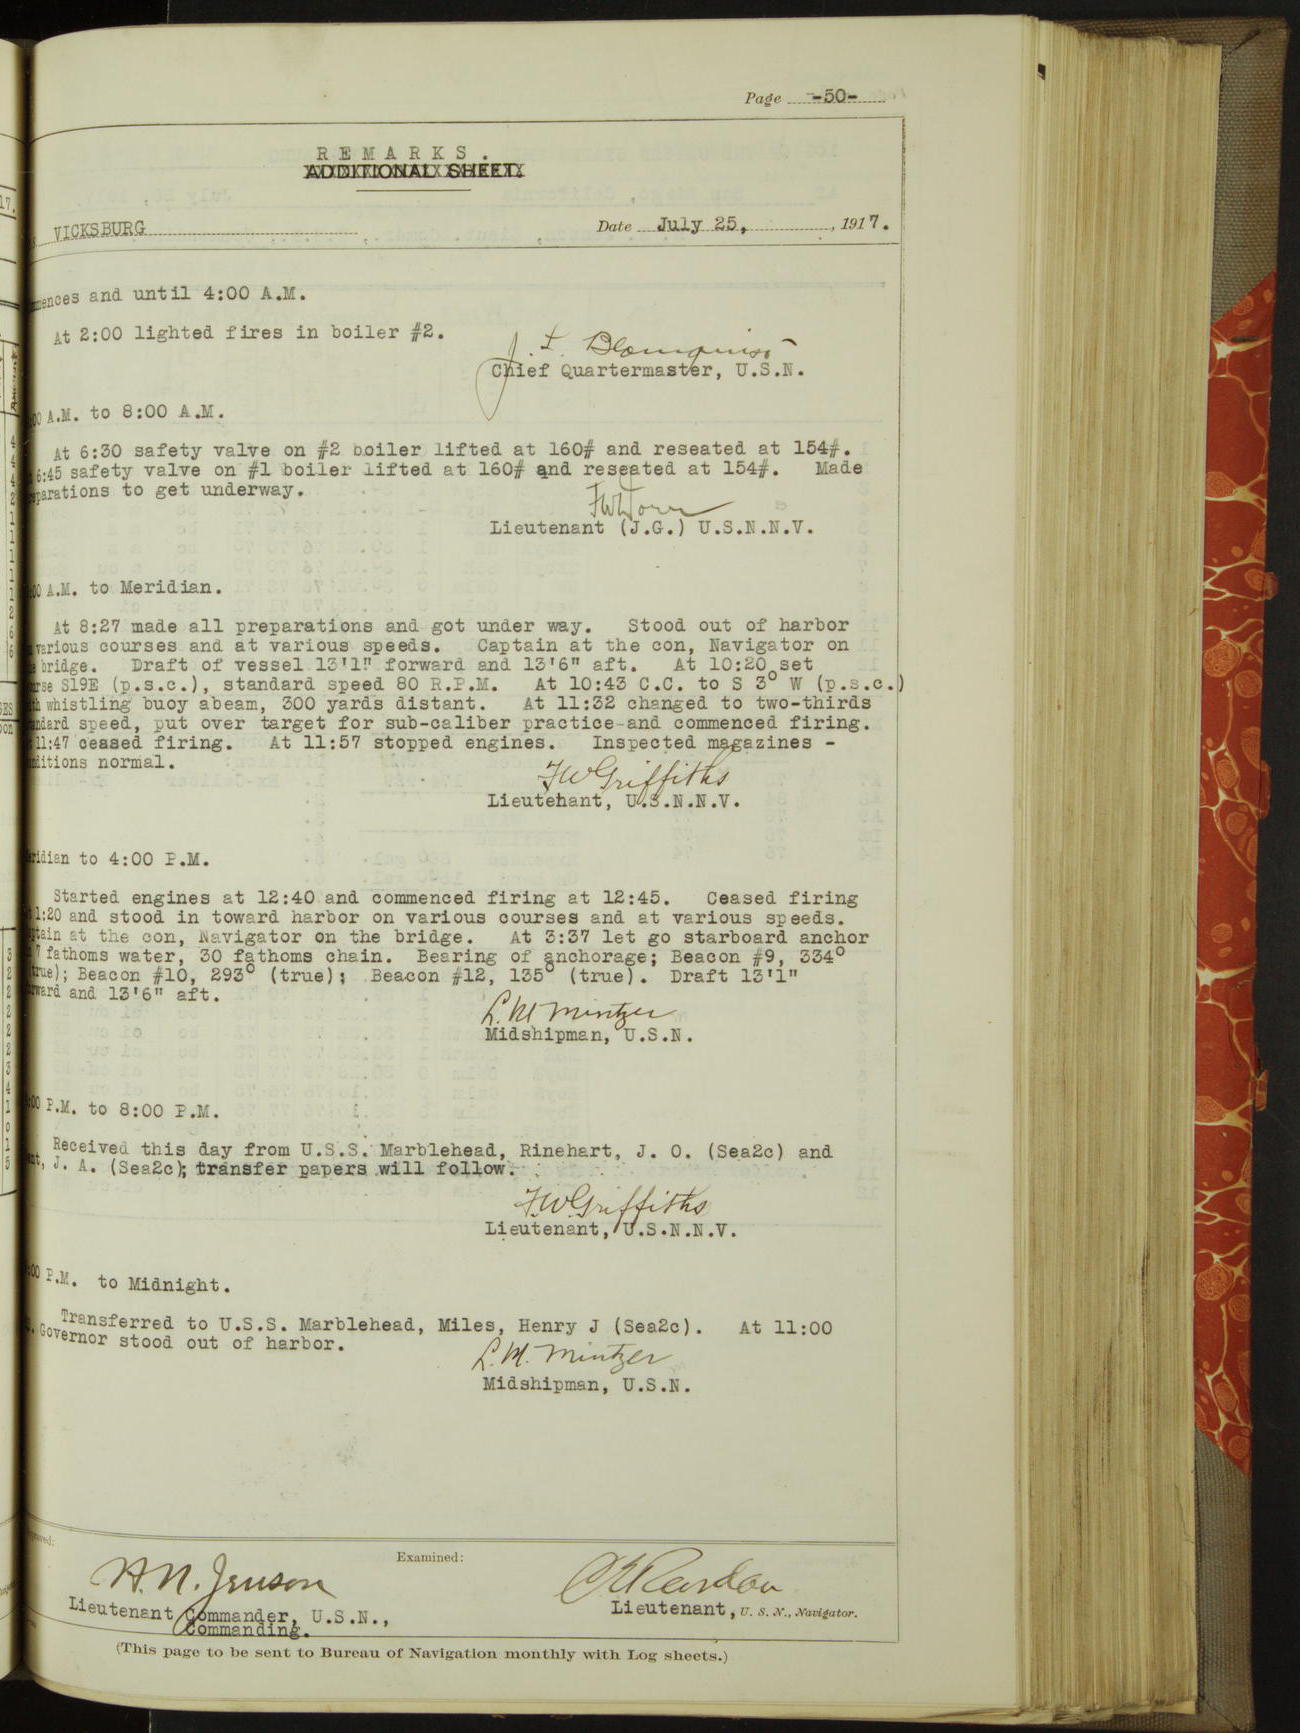 Page -50-
REMARKS.
ADDITIONAL SHEET.
VICKSBURG Date July 25, , 1917.
mences and until 4:00 A.M.
At 2:00 lighted fires in boiler #2.
J. F. Blomquist
Chief Quartermaster, U.S.N.
:00 A.M. to 8:00 A.M.
At 6:30 safety valve on #2 boiler lifted at 160# and reseated at 154#.
6:45 safety valve on #1 boiler lifted at 160# and reseated at 154#. Made
parations to get underway.
Lieutenant (J.G.) U.S.N.N.V.
:00 A.M. to Meridian.
At 8:27 made all preparations and got under way. Stood out of harbor
various courses and at various speeds. Captain at the con, Navigator on
bridge. Draft of vessel 13'1" forward and 13'6" aft. At 10:20 set
rse S19E (p.s.c.), standard speed 80 R.P.M. At 10:43 C.C. to S 3° W (p.s.c.)
th whistling buoy abeam, 300 yards distant. At 11:32 changed to two-thirds
ndard speed, put over target for sub-caliber practice and commenced firing.
11:47 ceased firing. At 11:57 stopped engines. Inspected magazines -
ditions normal.
F W Griffiths
Lieutenant, U.S.N.N.V.
ridian to 4:00 P.M.
Started engines at 12:40 and commenced firing at 12:45. Ceased firing
1:20 and stood in toward harbor on various courses and at various speeds.
ptain at the con, Navigator on the bridge. At 3:37 let go starboard anchor
7 fathoms water, 30 fathoms chain. Bearing of anchorage; Beacon #9, 334°
true); Beacon #10, 293° (true); Beacon #12, 135° (true). Draft 13'1"
rward and 13'6" aft.
L. M. Mintzer
Midshipman, U.S.N.
:00 P.M. to 8:00 P.M.
Received this day from U.S.S. Marblehead, Rinehart, J. O. (Sea2c) and
nt, J. A. (Sea2c); transfer papers will follow.
F. W. Griffiths
Lieutenant, U.S.N.N.V.
:00 P.M. to Midnight.
Transferred to U.S.S. Marblehead, Miles, Henry J (Sea2c). At 11:00
. Governor stood out of harbor.
L. M. Mintzer
Midshipman, U.S.N.
Examined:
H. N. Jenson
Lieutenant Commander, U.S.N.,
Commanding.
Lieutenant, U. S. N., Navigator.
(This page to be sent to Bureau of Navigation monthly with Log sheets.)